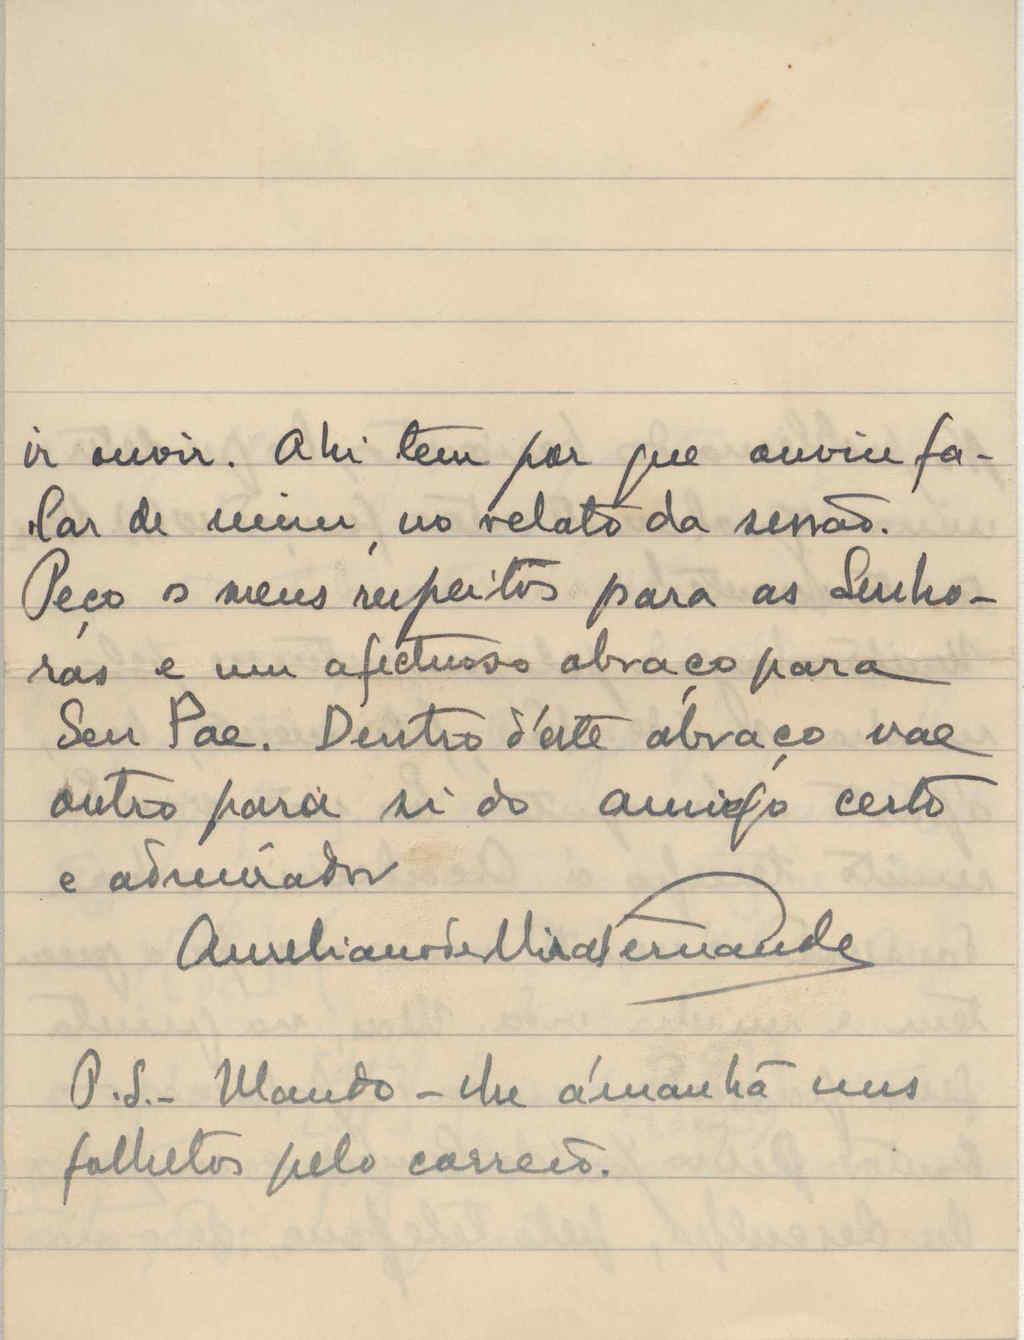 ir ouvir. Ahi tem por que ouviu fa-
lar de mim, no relato da sessão.
Peço os meus respeitos para as Senho-
ras e um afectuoso abraço para
Seu Pae. Dentro d'este abraço vae
outro para si do amigo certo
e admirador
Aureliano de Mira Fernandes
P.S. - Mando-lhe ámanhã uns
folhetos pelo correio.